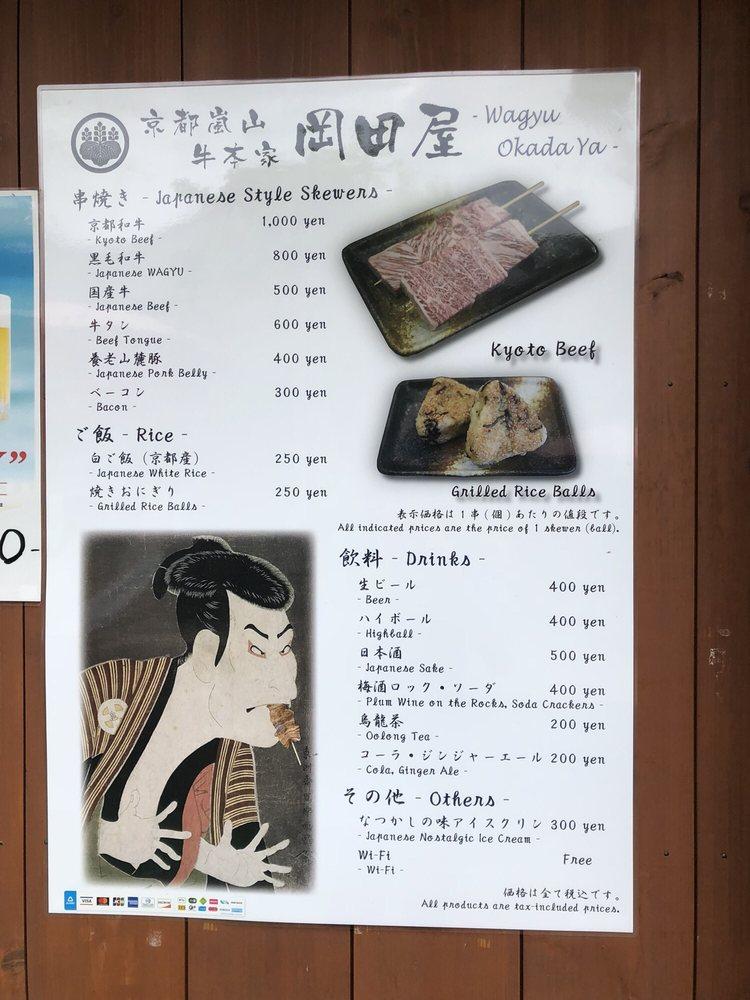 京都嵐山
牛本家
岡田屋
- Wagyu
Okada Ya -
串焼き - Japanese Style Skewers -
京都和牛 1,000 yen
- Kyoto Beef -
黒毛和牛 800 yen
- Japanese WAGYU -
国産牛 500 yen
- Japanese Beef -
牛タン 600 yen
- Beef Tongue -
養老山麓豚 400 yen
- Japanese Pork Belly -
ベーコン 300 yen
- Bacon -
Kyoto Beef
ご飯 - Rice -
白ご飯（京都産） 250 yen
- Japanese White Rice -
焼きおにぎり 250 yen
- Grilled Rice Balls -
Grilled Rice Balls
表示価格は1串(個)あたりの値段です。
All indicated prices are the price of 1 skewer (ball).
飲料 - Drinks -
生ビール 400 yen
- Beer -
ハイボール 400 yen
- Highball -
日本酒 500 yen
- Japanese Sake -
梅酒ロック・ソーダ 400 yen
- Plum Wine on the Rocks, Soda Crackers -
烏龍茶 200 yen
- Oolong Tea -
コーラ・ジンジャーエール 200 yen
- Cola, Ginger Ale -
その他 - Others -
なつかしの味アイスクリン 300 yen
- Japanese Nostalgic Ice Cream -
Wi-Fi Free
- Wi-Fi -
価格は全て税込です。
All products are tax-included prices.
VISA
JCB